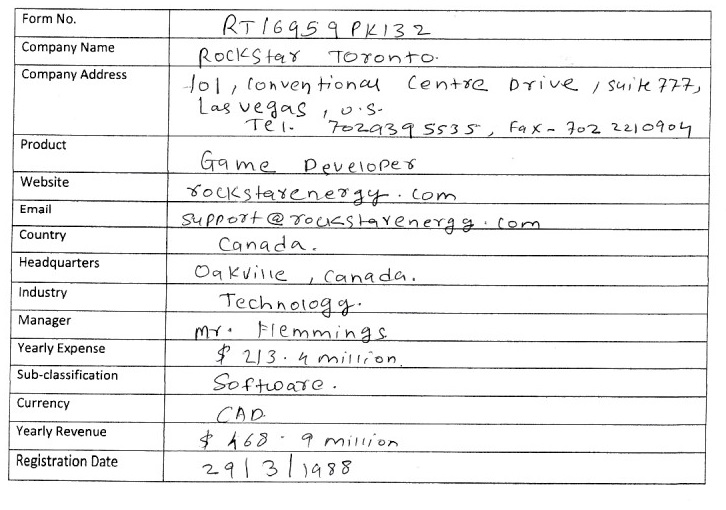 Form No. RT16959PK132
Company Name Rockstar Toronto.
Company Address 101, Conventional Centre Drive, Suite 777,
Las vegas, U.S.
Tel. 7029395535, Fax - 702 2210904
Product Game Developer
Website rockstarenergy.com
Email support@rockstarenergy.com
Country Canada.
Headquarters Oakville, Canada.
Industry Technology.
Manager Mr. Flemmings
Yearly Expense $ 213.4 million.
Sub-classification Software.
Currency CAD.
Yearly Revenue $ 468.9 million
Registration Date 29/3/1988